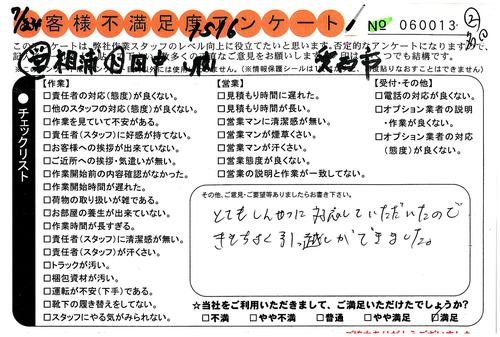 お客様不満足度アンケート
7/24
9576
No 060013
②
このアンケートは、弊社作業スタッフのレベル向上に役立てたいと思います。否定的なアンケートになりますので、
相浦 田中
チェックリスト
【作業】
□責任者の対応(態度)が良くない。
□他のスタッフの対応(態度)が良くない。
□作業を見ていて不安がある。
□責任者(スタッフ)に好感が持てない。
□お客様への挨拶が出来ていない。
□ご近所への挨拶・気遣いが無い。
□作業開始前の内容確認がなかった。
□作業開始時間が遅れた。
□荷物の取り扱いが雑である。
□お部屋の養生が出来ていない。
□作業時間が長すぎる。
□責任者(スタッフ)に清潔感が無い。
□責任者(スタッフ)が汗くさい。
□トラックが汚い。
□梱包資材が汚い。
□運転が不安(下手)である。
□靴下の履き替えをしてない。
□スタッフにやる気がみられない。
【営業】
□見積もり時間に遅れた。
□見積もり時間が長い。
□営業マンに清潔感が無い。
□営業マンが煙草くさい。
□営業マンが汗くさい。
□営業態度が良くない。
□営業の説明と作業が一致してない。
【受付・その他】
□電話の対応が良くない。
□オプション業者の説明
・作業が良くない。
□オプション業者の対応
(態度)が良くない。
その他、ご意見・ご要望等ありましたらお書き下さい。
とてもしんせつに対応していただいたので
きもちよく引っ越しができました。
☆当社をご利用いただきまして、ご満足いただけたでしょうか?
□不満 □やや不満 □普通 □やや満足 □満足